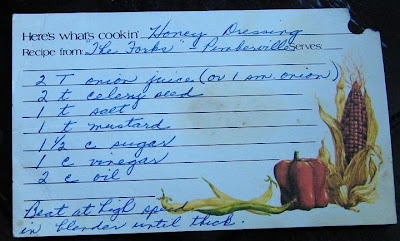 Here's what's cookin' Honey Dressing
Recipe from: "The Forks" - Pemberville Serves:
2 T onion juice (or 1 sm onion)
2 t celery seed
1 t salt
1 t mustard
1 1/2 c sugar
1 c vinegar
2 c oil
Beat at high speed
in blender until thick.